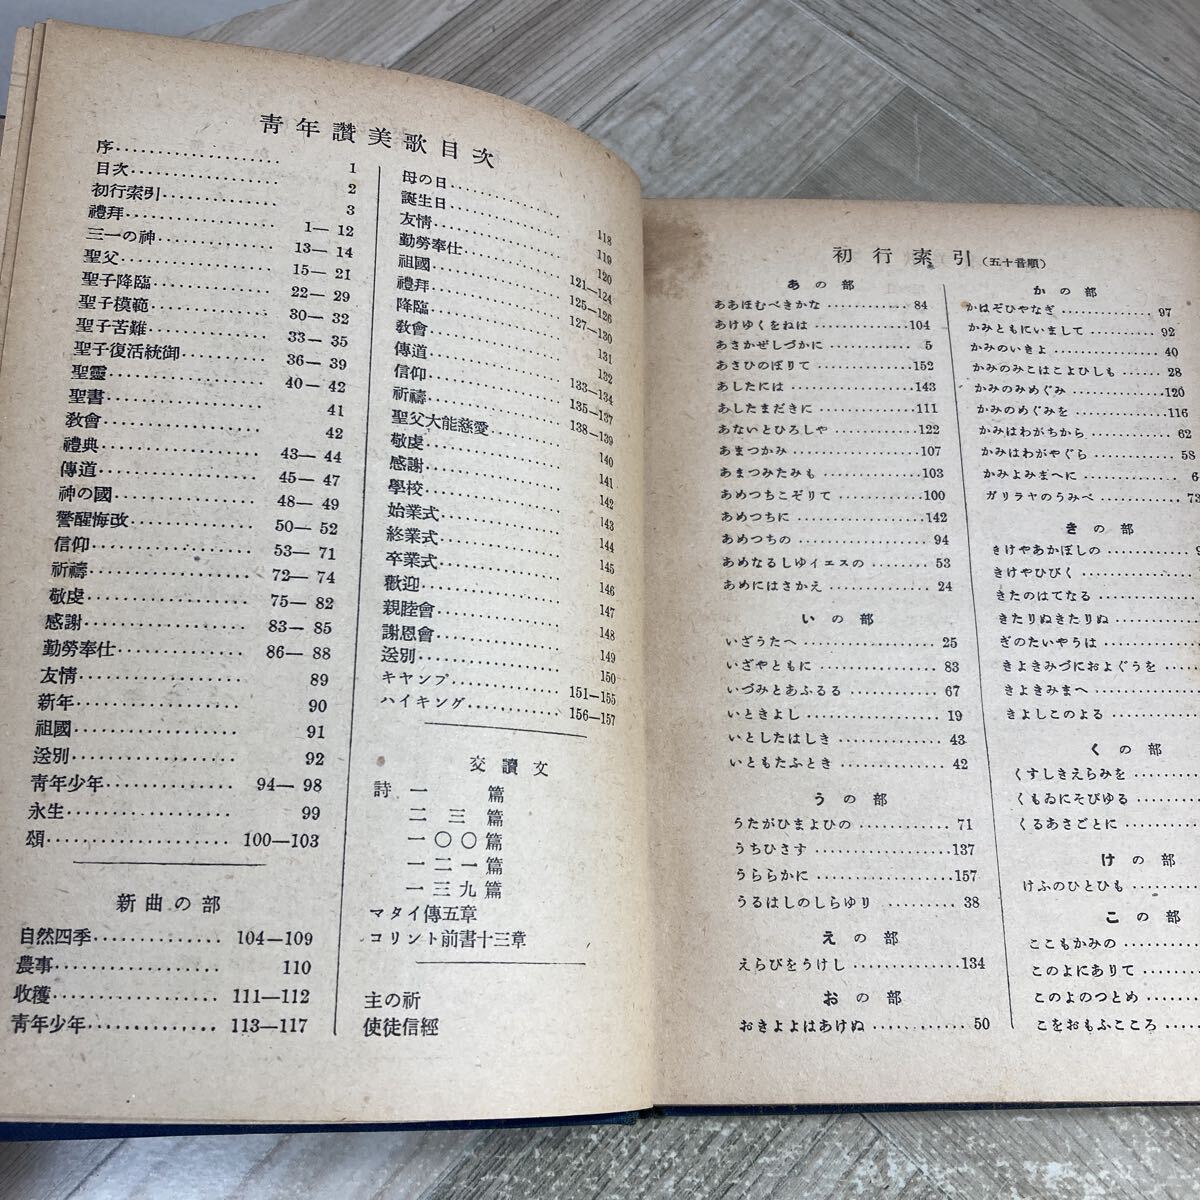 青年讚美歌目次
序 1
目次 2
初行索引 3
禮拜 1—12
三一の神 13—14
聖父 15—21
聖子降臨 22—29
聖子模範 30—32
聖子苦難 33—35
聖子復活統御 36—39
聖靈 40—42
聖書 41
敎會 42
禮典 43—44
傳道 45—47
神の國 48—49
警醒悔改 50—52
信仰 53—71
祈禱 72—74
敬虔 75—82
感謝 83—85
勤勞奉仕 86—88
友情 89
新年 90
祖國 91
送別 92
青年少年 94—98
永生 99
頌 100—103
新曲の部
自然四季 104—109
農事 110
收穫 111—112
青年少年 113—117
母の日 118
誕生日 119
友情 120
勤勞奉仕 121—124
祖國 125—126
禮拜 127—130
降臨 131
敎會 132
傳道 133—134
信仰 135—137
祈禱 138—139
聖父大能慈愛 140
敬虔 141
感謝 142
學校 143
始業式 144
終業式 145
卒業式 146
歡迎 147
親睦會 148
謝恩會 149
送別 150
キヤンプ 151—155
ハイキング 156—157
交讀文
詩一篇
二三篇
一〇〇篇
一二一篇
一三九篇
マタイ傳五章
コリント前書十三章
主の祈
使徒信經
初行索引(五十音順)
あの部
ああほむべきかな 84
あけゆくをねは 104
あさかぜしづかに 5
あさひのぼりて 152
あしたには 143
あしたまだきに 111
あないとひろしや 122
あまつかみ 107
あまつみたみも 103
あめつちこぞりて 100
あめつちに 142
あめつちの 94
あめなるしゆイエスの 53
あめにはさかえ 24
いの部
いざうたへ 25
いざやともに 83
いづみとあふるる 67
いときよし 19
いとしたはしき 43
いともたふとき 42
うの部
うたがひまよひの 71
うちひさす 137
うららかに 157
うるはしのしらゆり 38
えの部
えらびをうけし 134
おの部
おきよよはあけぬ 50
かの部
かはぞひやなぎ 97
かみともにいまして 92
かみのいきよ 40
かみのみこはこよひしも 28
かみのみめぐみ 120
かみのめぐみを 116
かみはわがちから 62
かみはわがやぐら 58
かみよみまへに 6
ガリラヤのうみべ 73
きの部
きけやあかぼしの
きけやひびく
きたのはてなる
きたりぬきたりぬ
ぎのたいやうは
きよきみづにおよぐうを
きよきみまへ
きよしこのよる
くの部
くすしきえらみを
くもゐにそびゆる
くるあさごとに
けの部
けふのひとひも
この部
ここもかみの
このよにありて
このよのつとめ
こをおもふこころ